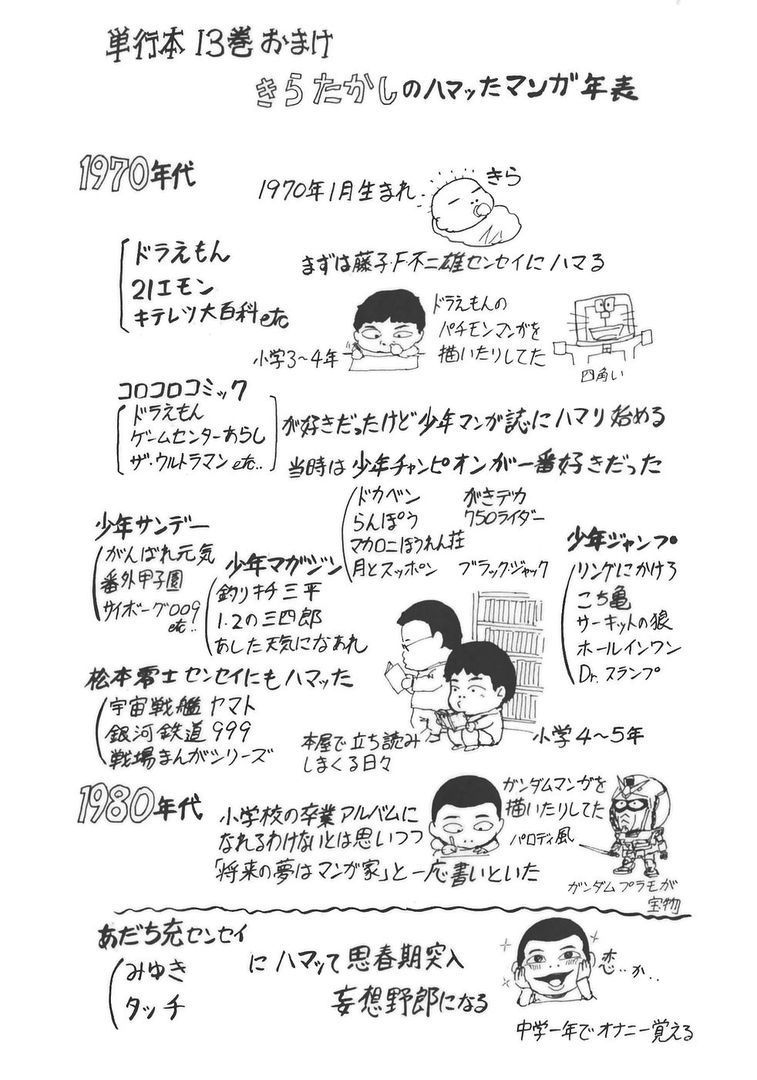 単行本13巻おまけ
きらたかしのハマッたマンガ年表
1970年代
1970年1月生まれ
きら
ドラえもん
21エモン
キテレツ大百科etc
まずは藤子・F・不二雄センセイにハマる
小学3〜4年
ドラえもんの
パチモンマンガを
描いたりしてた
四角い
コロコロコミック
ドラえもん
ゲームセンターあらし
ザ・ウルトラマンetc..
が好きだったけど少年マンガ誌にハマリ始める
当時は少年チャンピオンが一番好きだった
ドカベン
らんぽう
マカロニほうれん荘
月とスッポン
がきデカ
750ライダー
ブラック・ジャック
少年サンデー
がんばれ元気
番外甲子園
サイボーグ009
etc..
少年マガジン
釣りキチ三平
1.2の三四郎
あした天気になあれ
少年ジャンプ
リングにかけろ
こち亀
サーキットの狼
ホールインワン
Dr.スランプ
松本零士センセイにもハマッた
宇宙戦艦ヤマト
銀河鉄道999
戦場まんがシリーズ
本屋で立ち読み
しまくる日々
小学4〜5年
1980年代
小学校の卒業アルバムに
なれるわけないとは思いつつ
「将来の夢はマンガ家」と一応書いといた
ガンダムマンガを
描いたりしてた
パロディ風
ガンダムプラモが
宝物
あだち充センセイ
みゆき
タッチ
にハマッて思春期突入
妄想野郎になる
恋..か..
中学一年でオナニー覚える